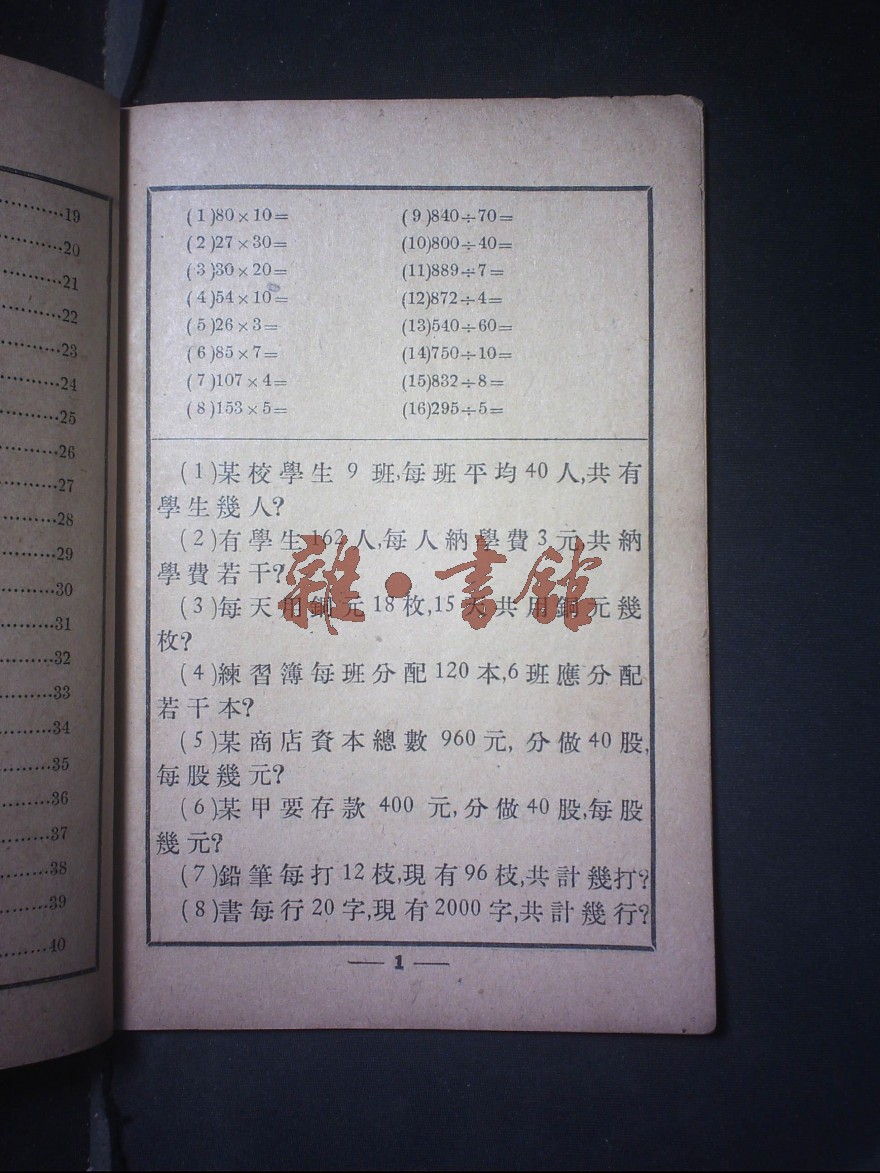 19
20
21
22
23
24
25
26
27
28
29
30
31
32
33
34
35
36
37
38
39
40
(1)80×10=
(2)27×30=
(3)30×20=
(4)54×10=
(5)26×3=
(6)85×7=
(7)107×4=
(8)153×5=
(9)840÷70=
(10)800÷40=
(11)889÷7=
(12)872÷4=
(13)540÷60=
(14)750÷10=
(15)832÷8=
(16)295÷5=
(1)某校學生9班,每班平均40人,共有
學生幾人?
(2)有學生162人,每人納學費3元,共納
學費若干?
(3)每天用銅元18枚,15天共用銅元幾
枚?
(4)練習簿每班分配120本,6班應分配
若干本?
(5)某商店資本總數960元,分做40股,
每股幾元?
(6)某甲要存款400元,分做40股,每股
幾元?
(7)鉛筆每打12枝,現有96枝,共計幾打?
(8)書每行20字,現有2000字,共計幾行?
— 1 —
雜·書館